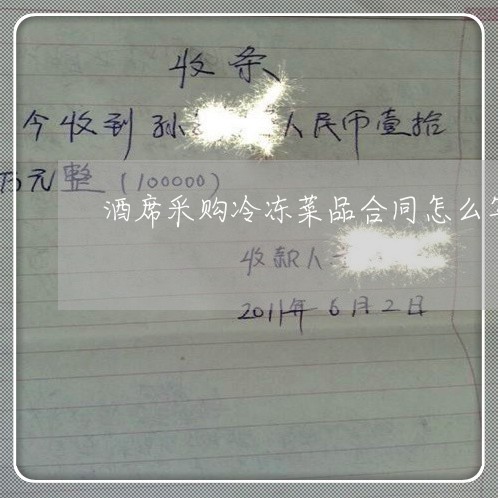 收条
今收到孙 人民币壹拾
万元整（100000）
酒席采购冷冻菜品合同怎么
收款人
2011年6月2日